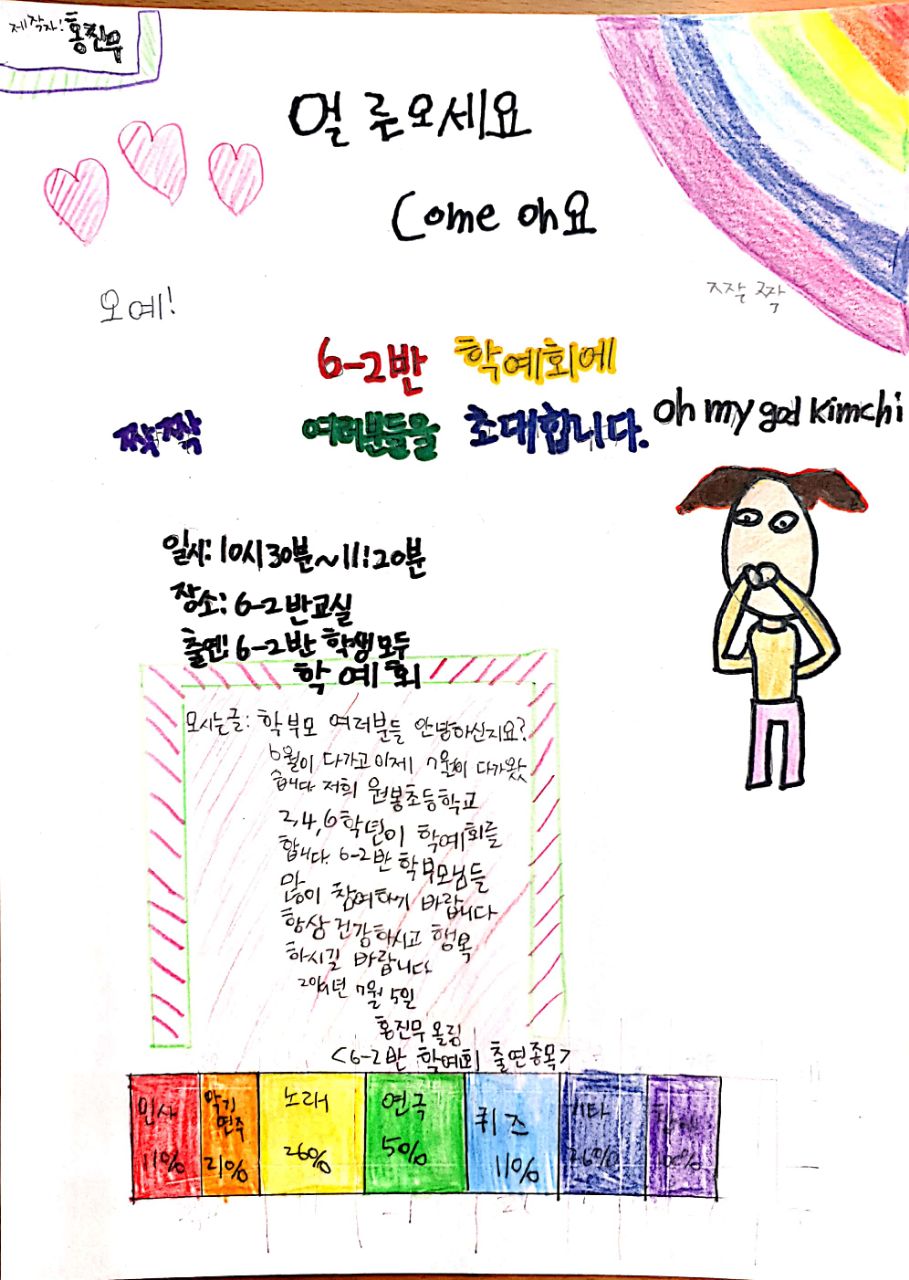 제작자: 홍진무
얼른오세요
Come on요
오예!
짝짝
6-2반 학예회에
짝짝 여러분들을 초대합니다.
oh my god kimchi
일시: 10시30분~11:20분
장소: 6-2반교실
출연: 6-2반 학생모두
학예회
모시는글: 학부모 여러분들 안녕하신지요?
6월이 다가고이제 7월이 다가왔
습니다 저희 원봉초등학교
2,4,6학년이 학예회를
합니다. 6-2반 학부모님들
많이 참여하기 바랍니다
항상 건강하시고 행복
하시길 바랍니다
7월 5일
홍진무 올림
<6-2반 학예회 출연종목>
인사 악기연주 노래 연극 퀴즈 기타
11% 21% 26% 5% 11% 26% 100%